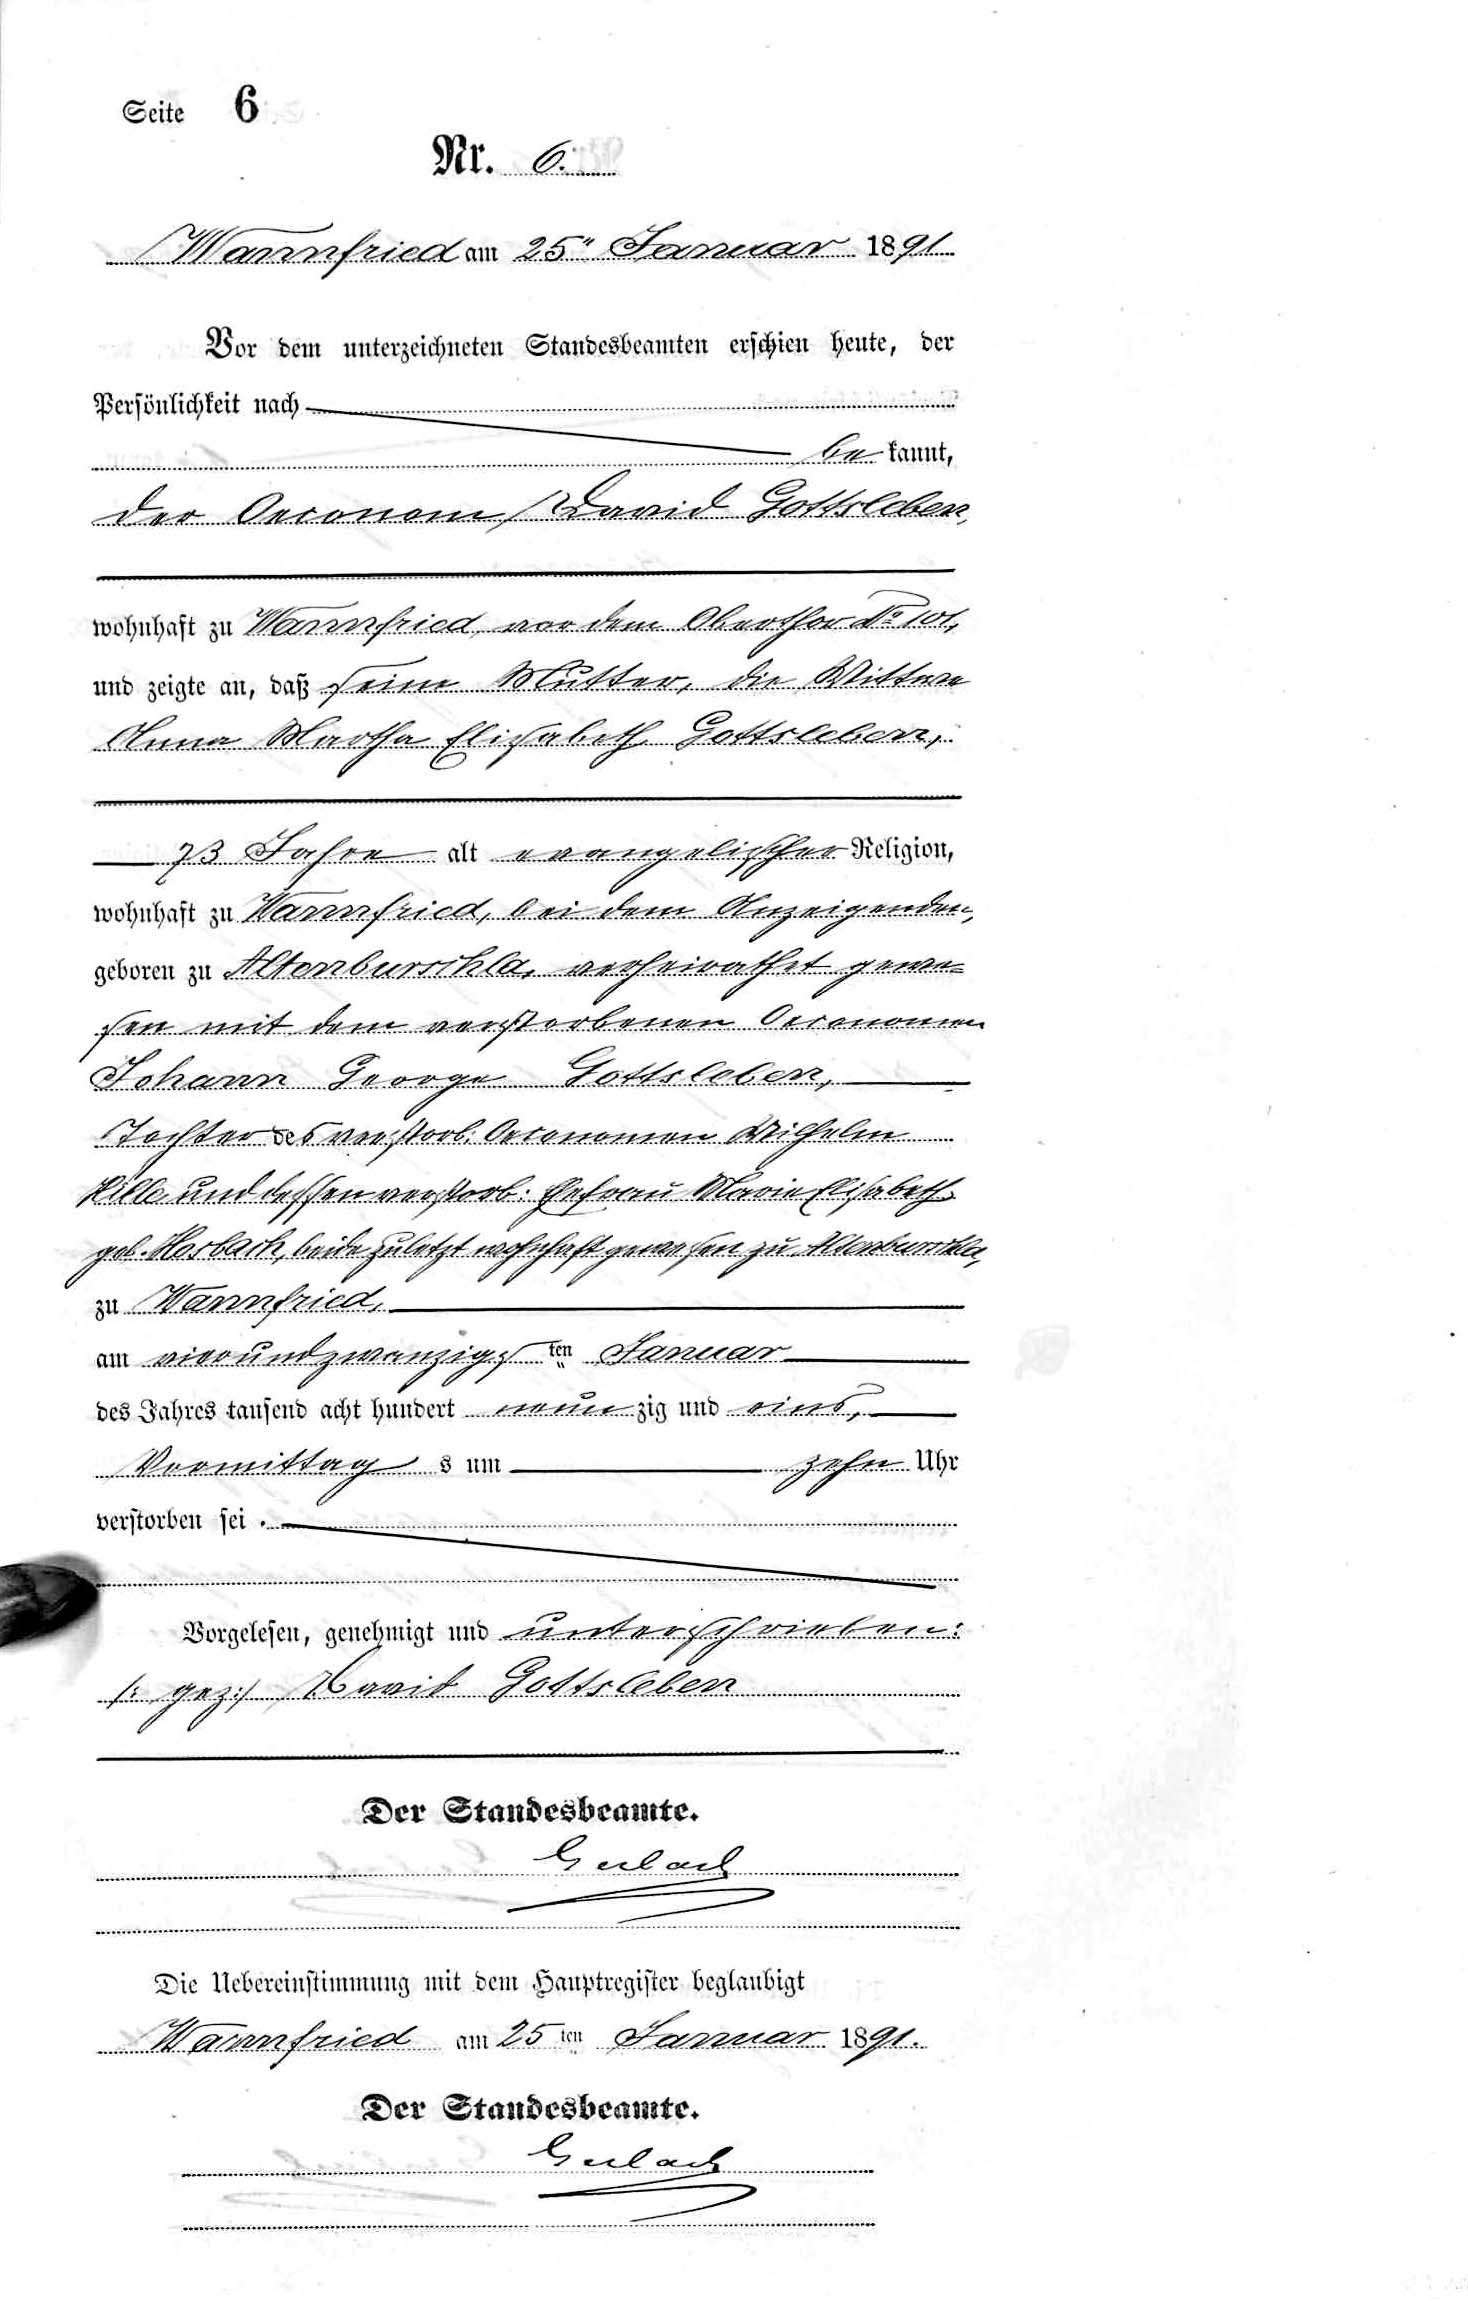 Seite 6
Nr. 6.
Wannfried am 25" Januar 1891
Vor dem unterzeichneten Standesbeamten erschien heute, der
Persönlichkeit nach
bekannt,
der Oeconom David Gottsleben,
wohnhaft zu Wannfried, vor dem Oberthor No 101,
und zeigte an, daß seine Mutter, die Wittwe
Anna Martha Elisabeth Gottsleben,
73 Jahre alt evangelischer Religion,
wohnhaft zu Wannfried, bei dem Anzeigenden,
geboren zu Altenburschla, verheirathet gewe=
sen mit dem verstorbenen Oeconomen
Johann George Gottsleben,
Tochter des verstorb. Oeconomen Wilhelm
und dessen verstorb. Ehefrau Marie Elisabeth
geb. beide zuletzt wohnhaft gewesen zu Altenburschla,
zu Wannfried,
am vierundzwanzigsten Januar
des Jahres tausend acht hundert neunzig und eins,
Vormittags um zehn Uhr
verstorben sei.
Vorgelesen, genehmigt und unterschrieben:
/: gez:/ David Gottsleben
Der Standesbeamte.
Gerlach
Die Uebereinstimmung mit dem Hauptregister beglaubigt
Wannfried am 25ten Januar 1891.
Der Standesbeamte.
Gerlach